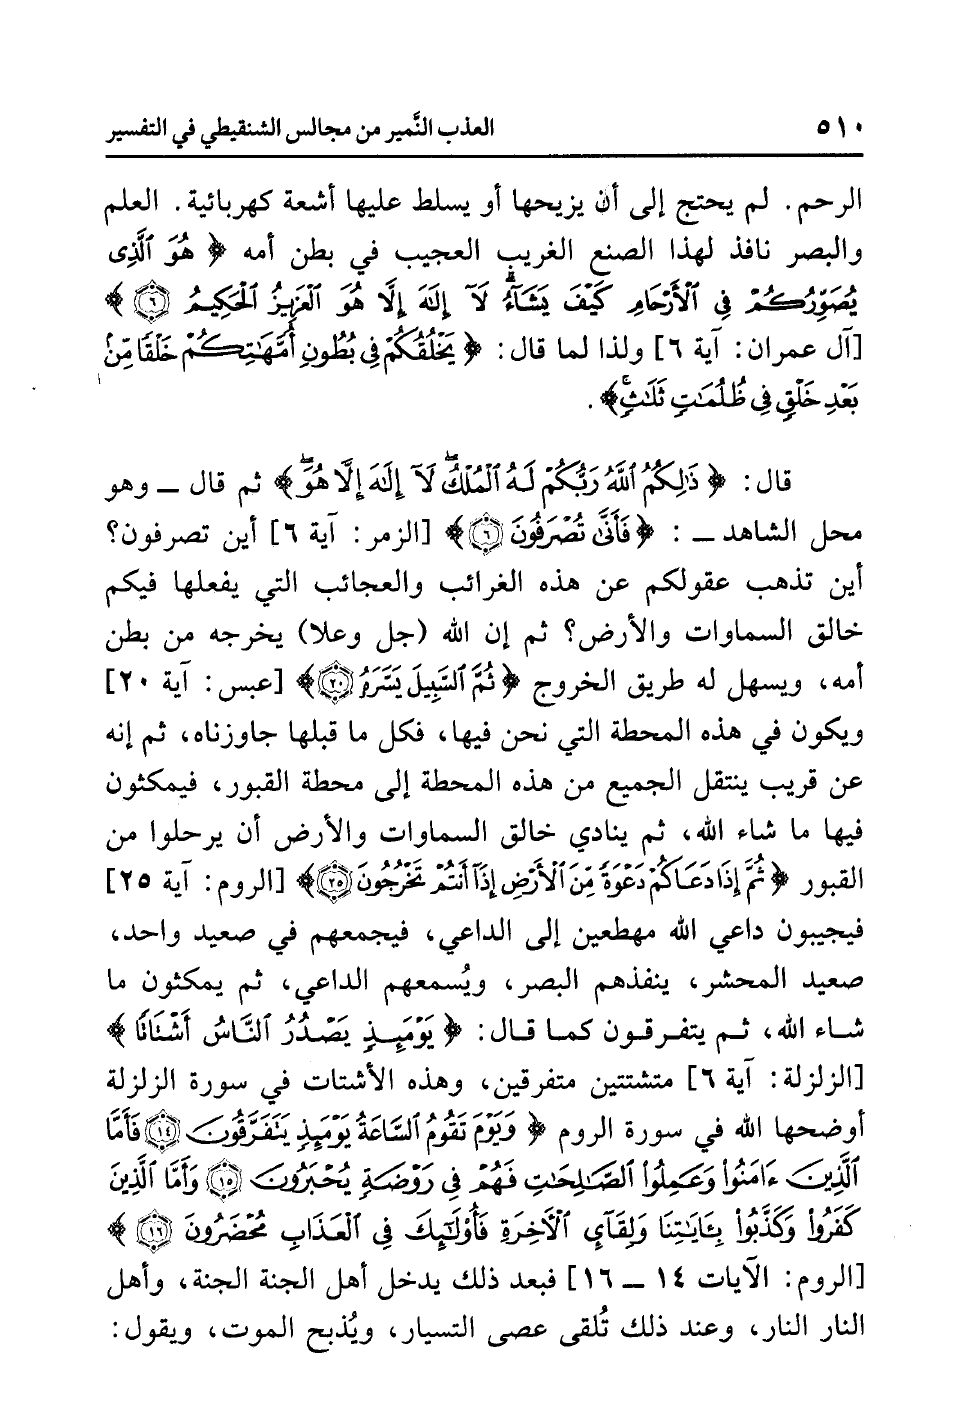 ٥١٠ العذب النَّمير من مجالس الشنقيطي في التفسير
الرحم. لم يحتج إلى أن يزيحها أو يسلط عليها أشعة كهربائية. العلم
والبصر نافذ لهذا الصنع الغريب العجيب في بطن أمه ﴿هُوَ ٱلَّذِى
يُصَوِّرُكُمْ فِى ٱلْأَرْحَامِ كَيْفَ يَشَآءُ ۚ لَآ إِلَٰهَ إِلَّا هُوَ ٱلْعَزِيزُ ٱلْحَكِيمُ ۝٦﴾
[آل عمران: آية ٦] ولذا لما قال: ﴿يَخْلُقُكُمْ فِى بُطُونِ أُمَّهَٰتِكُمْ خَلْقًا مِّنۢ
بَعْدِ خَلْقٍ فِى ظُلُمَٰتٍ ثَلَٰثٍ ۚ﴾.
قال: ﴿ذَٰلِكُمُ ٱللَّهُ رَبُّكُمْ لَهُ ٱلْمُلْكُ ۖ لَآ إِلَٰهَ إِلَّا هُوَ ۖ﴾ ثم قال ــ وهو
محل الشاهد ــ : ﴿فَأَنَّىٰ تُصْرَفُونَ ۝٦﴾ [الزمر: آية ٦] أين تصرفون؟
أين تذهب عقولكم عن هذه الغرائب والعجائب التي يفعلها فيكم
خالق السماوات والأرض؟ ثم إن الله (جل وعلا) يخرجه من بطن
أمه، ويسهل له طريق الخروج ﴿ثُمَّ ٱلسَّبِيلَ يَسَّرَهُۥ ۝٢٠﴾ [عبس: آية ٢٠]
ويكون في هذه المحطة التي نحن فيها، فكل ما قبلها جاوزناه، ثم إنه
عن قريب ينتقل الجميع من هذه المحطة إلى محطة القبور، فيمكثون
فيها ما شاء الله، ثم ينادي خالق السماوات والأرض أن يرحلوا من
القبور ﴿ثُمَّ إِذَا دَعَاكُمْ دَعْوَةً مِّنَ ٱلْأَرْضِ إِذَآ أَنتُمْ تَخْرُجُونَ ۝٢٥﴾ [الروم: آية ٢٥]
فيجيبون داعي الله مهطعين إلى الداعي، فيجمعهم في صعيد واحد،
صعيد المحشر، ينفذهم البصر، ويُسمعهم الداعي، ثم يمكثون ما
شاء الله، ثم يتفرقون كما قال: ﴿يَوْمَئِذٍ يَصْدُرُ ٱلنَّاسُ أَشْتَاتًا﴾
[الزلزلة: آية ٦] متشتتين متفرقين، وهذه الأشتات في سورة الزلزلة
أوضحها الله في سورة الروم ﴿وَيَوْمَ تَقُومُ ٱلسَّاعَةُ يَوْمَئِذٍ يَتَفَرَّقُونَ ۝١٤ فَأَمَّا
ٱلَّذِينَ ءَامَنُوا۟ وَعَمِلُوا۟ ٱلصَّٰلِحَٰتِ فَهُمْ فِى رَوْضَةٍ يُحْبَرُونَ ۝١٥ وَأَمَّا ٱلَّذِينَ
كَفَرُوا۟ وَكَذَّبُوا۟ بِـَٔايَٰتِنَا وَلِقَآئِ ٱلْأَخِرَةِ فَأُو۟لَٰٓئِكَ فِى ٱلْعَذَابِ مُحْضَرُونَ ۝١٦﴾
[الروم: الآيات ١٤ ــ ١٦] فبعد ذلك يدخل أهل الجنة الجنة، وأهل
النار النار، وعند ذلك تُلقى عصى التسيار، ويُذبح الموت، ويقول: